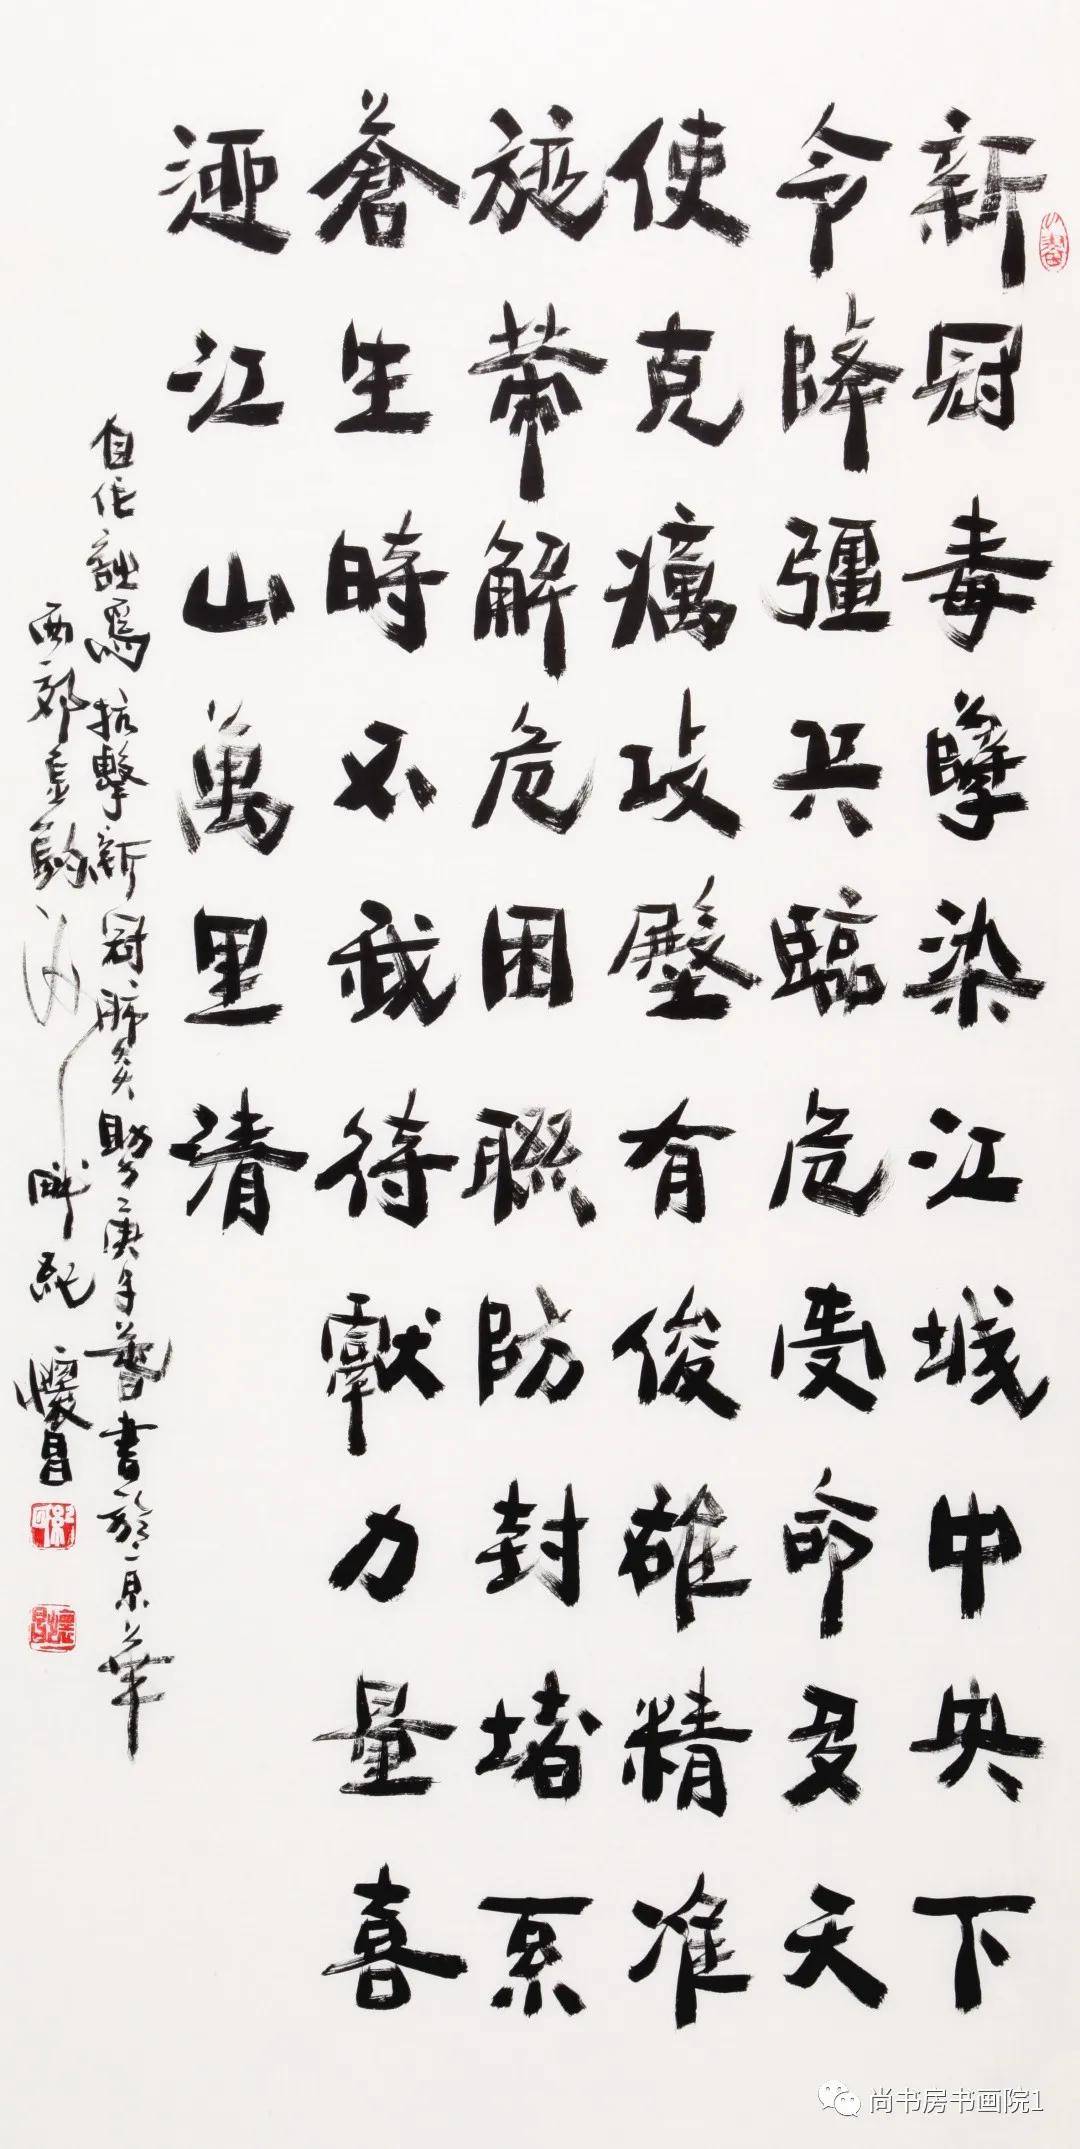 新冠毒孽染江城中央下
令降疆兵臨危受命多天
使克癘攻有俊雄精准
施帶解危困聯防封堵系
蒼生時不我待獻力量喜
迎江山萬里清
自作詩爲抗擊新冠肺炎助力庚子春書於京華
西郊畔紀懷昌
尚书房书画院1